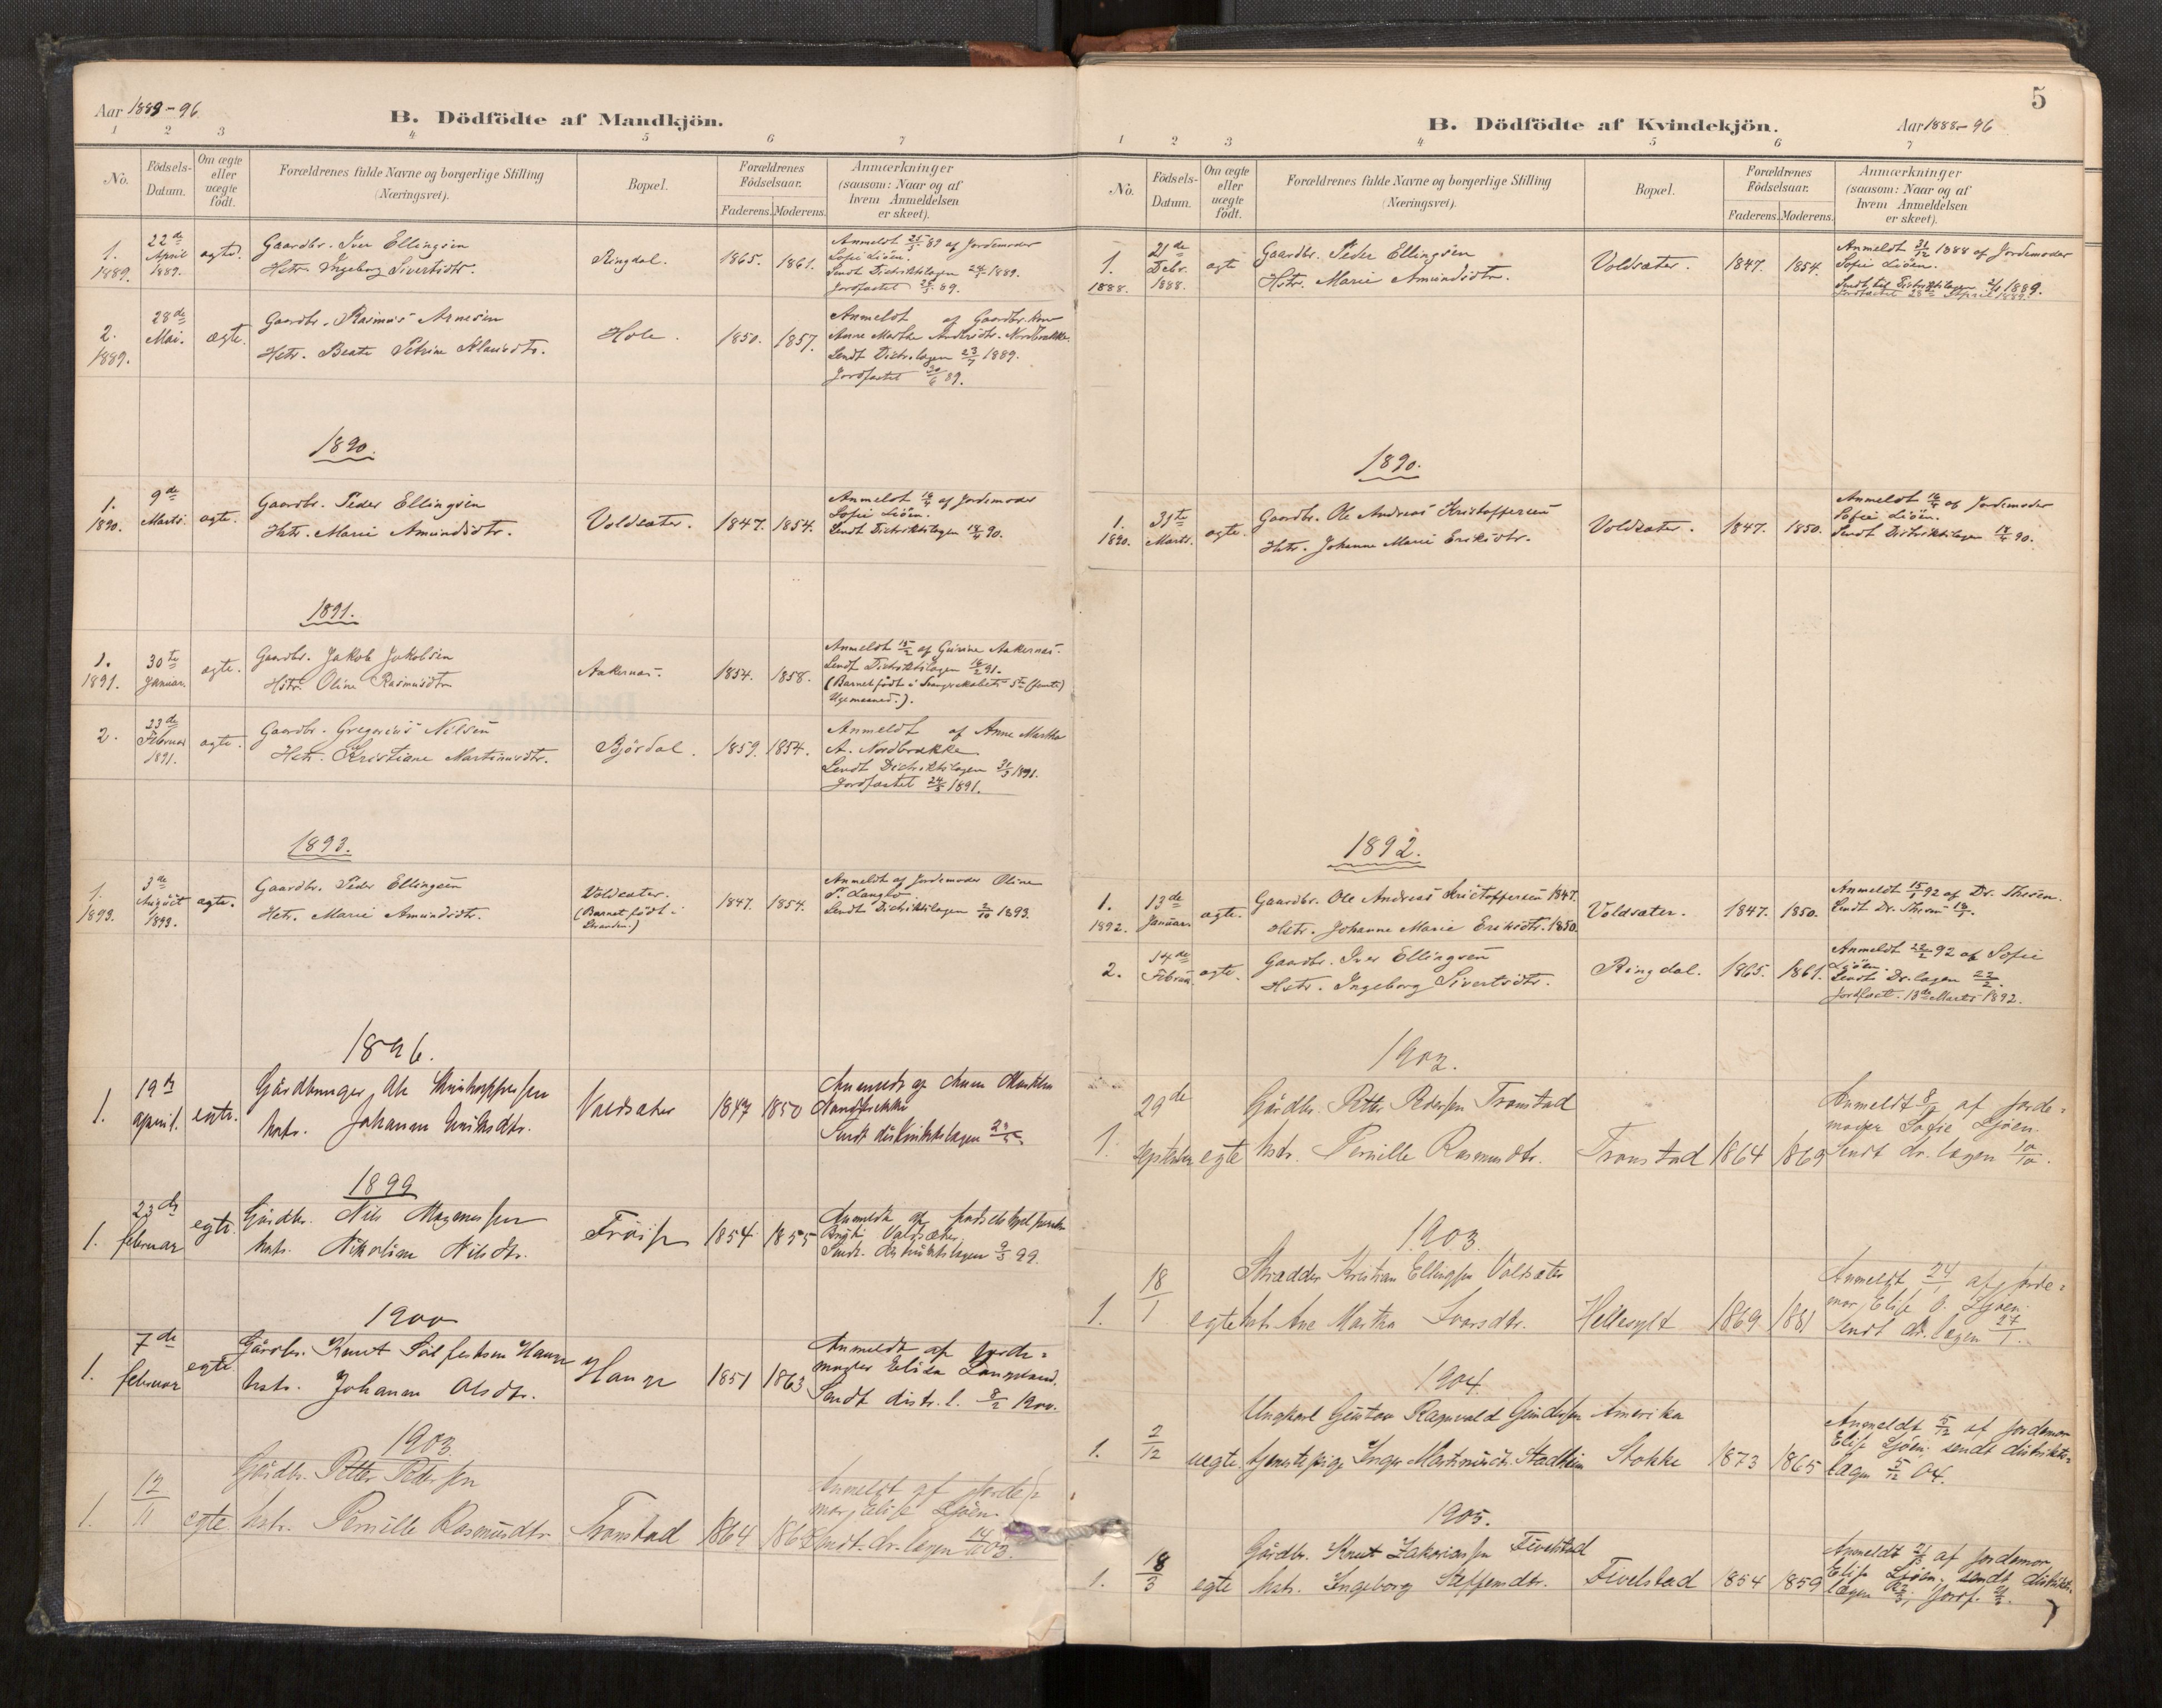 Aar 1889-96
B. Dödfödte af Mandkjön.
1 2 3 4 5 6 7
No.
Födsels-
Datum.
Om ægte
eller
uægte
født.
Forældrenes fulde Navne og borgerlige Stilling
(Næringsvei).
Bopæl.
Forældrenes
Födselsaar.
Faderens. Moderens.
Anmærkninger
(saasom: Naar og af
hvem Anmeldelsen
er skeet).
1.
1889.
22de
April
1889.
ægte.
Gaardbr. Iver Ellingsen
Hstr. Ingeborg Sivertsdtr.
Ringdal.
1865. 1861.
Anmeldt 25/5 89 af Jordemoder
Sofie Liöen.
Sendt Distriktslægen 1889.
Jordfæstet 89.
2.
1889.
28de
Mai.
ægte.
Gaardbr. Rasmus Arnesen
Hstr. Beate Petrine Klausdtr.
Hole.
1850. 1857.
Anmeldt af Gaardbr. kone
Anne Marthe Andersdtr. Nordbrække.
Sendt Distr.lægen 23/7 1889.
Jordfæstet 30/6 89.
1890.
1.
1890.
9de
Marts.
ægte.
Gaardbr. Peder Ellingsen
Hstr. Marie Amundsdtr.
Voldsæter.
1847. 1854.
Anmeldt 14/4 af Jordemoder
Sofie Liöen.
Sendt Distriktslægen 18/4 90.
1891.
1.
1891.
30te
Januar.
ægte.
Gaardbr. Jakob Jakobsen
Hstr. Oline Rasmusdtr.
Aakernæs.
1854. 1858.
Anmeldt 15/2 af Gurine Aakernæs.
Sendt Distriktslægen 18/2 91.
(Barnet født i Svangerskabets 5te (femte)
Ugemaaned.).
2.
23de
Februar
1891.
ægte.
Gaardbr. Gregorius Nilsen
Hstr. Kristiane Martinusdtr.
Bjørdal.
1859. 1854.
Anmeldt af Anne Martha
A. Nordbrække
Sendt Distriktslægen 31/3 1891.
Jordfæstet 24/3 1891.
1893.
1.
1893.
3de
August
1893.
ægte.
Gaardbr. Peder Ellingsen
Hstr. Marie Amundsdtr.
Voldsæter.
(Barnet født i
Stranden.)
1847. 1854.
Anmeldt af Jordemoder Oline
P. Langlo.
Sendt Distriktslægen 2/10 1893.
1896.
1.
19de
april.
egte.
Gårdbruger Ole Kristoffersen
hstr. Johanne Eriksdtr.
Voldsæter
1847 1850
Anmeldt af Anne Martha
Nordbrekke
Sendt distriktslægen
1899
1.
23de
februar
egte.
Gårdbr. Nils Magnussen
hstr. Nikoline Nilsdtr.
1854 1855
Anmeldt af fødselshjelpersken
Voldsæter.
Sendt distriktslægen 9/3 99.
1900
1.
7de
februar
egte
Gårdbr. Knut Hauge
hstr. Johanne Olsdtr.
Hauge
1851 1863
Anmeldt af jorde=
moder Elida Langeland.
Sendt distr. l. 8/2 1900.
1903
1.
12/11
egte
Gårdbr. Petter Pedersen
hstr. Pernille Rasmusdtr.
Tronstad
1864
Anmeldt af jorde=
mor, Elise Ljøen.
Sendt. dr. lægen 14/11 03.
5
B. Dödfödte af Kvindekjön.
Aar 1888-96
1 2 3 4 5 6 7
No.
Födsels-
Datum.
Om ægte
eller
uægte
födt.
Forældrenes fulde Navne og borgerlige Stilling
(Næringsvei).
Bopæl.
Forældrenes
Födselsaar.
Faderens. Moderens.
Anmærkninger
(saasom: Naar og af
hvem Anmeldelsen
er skeet).
1.
1888.
21de
Debr.
1888.
ægte
Gaardbr. Peder Ellingsen
Hstr. Marie Amundsdtr.
Voldsæter.
1847. 1854.
Anmeldt 31/12 1888 af Jordemoder
Sofie Liöen.
Sendt til Distriktslægen 2/1 1889.
Jordfæstet 28de April 1889.
1890.
1.
1890.
31te
Marts.
ægte.
Gaardbr. Ole Andreas Kristoffersen
Hstr. Johanne Marie Eriksdtr.
Voldsæter.
1847. 1850.
Anmeldt 14/4 af Jordemoder
Sofie Liöen.
Sendt Distriktslægen 18/4 90.
1892.
1.
1892.
13de
Januar.
ægte.
Gaardbr. Ole Andreas Kristoffersen 1847.
Hstr. Johanne Marie Eriksdtr. 1850.
Voldsæter.
1847. 1850.
Anmeldt 15/1 92 af Dr. Thesen.
Sendt Dr. Thesen 18/1.
2.
14de
Februar
ægte.
Gaardbr. Iver Ellingsen
Hstr. Ingeborg Sivertsdtr.
Ringdal.
1865. 1861.
Anmeldt 22/2 92 af Sofie
Ljöen.
Sendt Dr. lægen 22/2.
Jordfæst. 13de Marts 1892.
1902.
1.
29de
September
egte
Gårdbr. Petter Pedersen Tronstad
hstr. Pernille Rasmusdtr.
Tronstad
1864 1869
Anmeldt 8/10 af jorde=
moder Sofie Ljøen.
Sendt dr. lægen 10/10.
1903.
1.
18/1
egte
Skrædder Kristian Ellingsen Voldsæter
hstr. Ane Martha Ivarsdtr.
Hellesylt
1869 1881
Anmeldt 24/1 af jorde=
mor, Elise O. Ljøen.
Sendt dr. lægen 27/1.
1904.
1.
2/12
uegte.
Ungkarl Gustav Ragnvald Gundersen Amerika
tjenestepige Inger Martinusdtr. Stadheim
Stokke
1873 1865
Anmeldt 5/12 af jordemor
Elise Ljøen. sendt distrikts=
lægen 5/12 04.
1905.
1.
18/3
egte
Gårdbr. Knut Zakariassen Fivelstad
hstr. Ingeborg Steffensdtr.
Fivelstad
1854 1859
Anmeldt 21/3 af jordemor
Elise Ljøen. sendt distrikts=
lægen 22/3, Jordf.